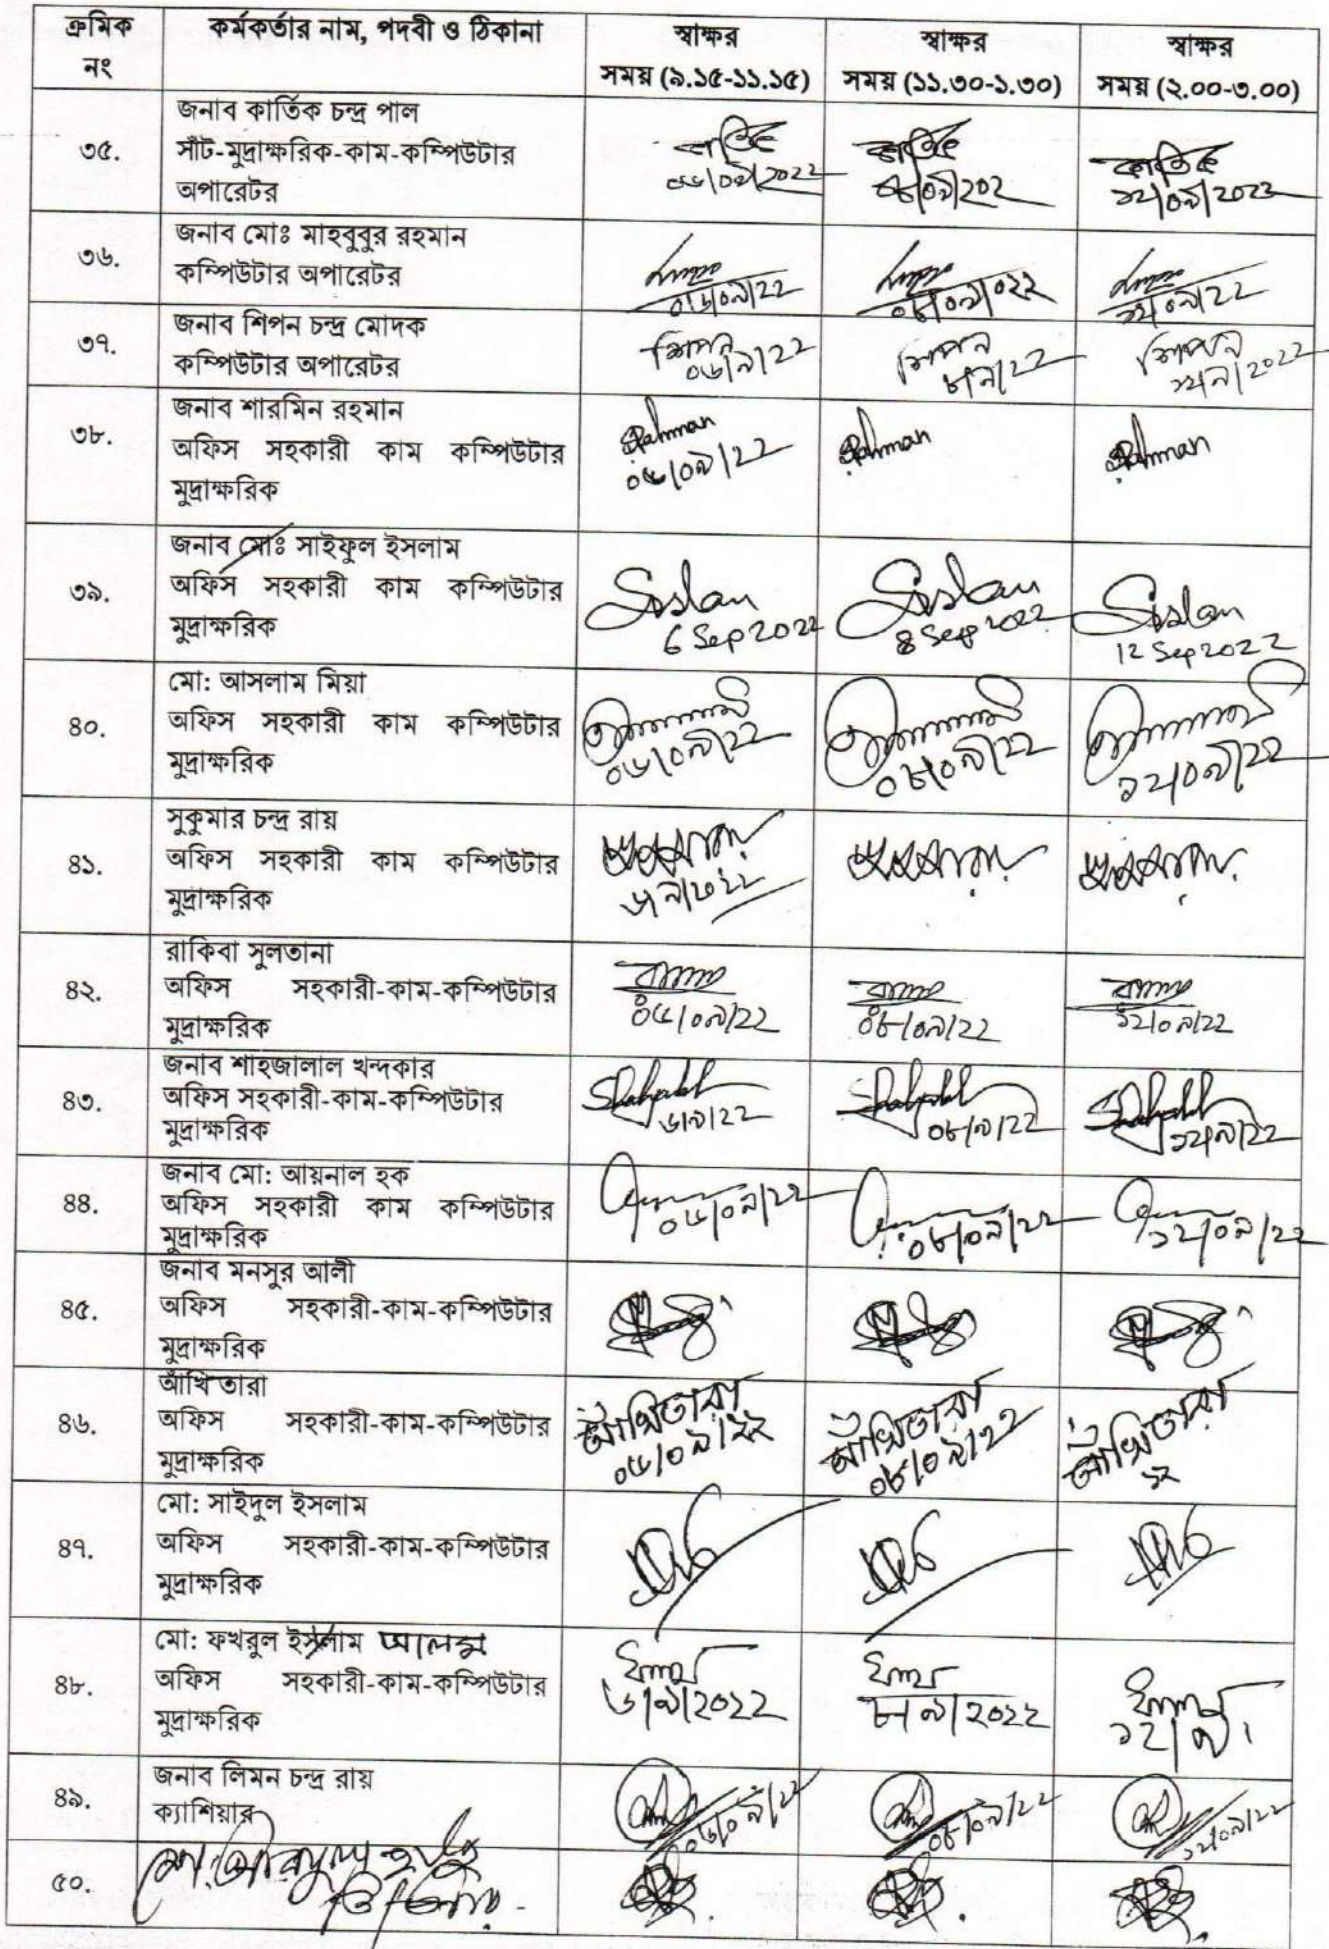 ক্রমিক নং কর্মকর্তার নাম, পদবী ও ঠিকানা স্বাক্ষর সময় (৯.১৫-১১.১৫) স্বাক্ষর সময় (১১.৩০-১.৩০) স্বাক্ষর সময় (২.০০-৩.০০)
৩৫.
জনাব কার্তিক চন্দ্র পাল
সাঁট-মুদ্রাক্ষরিক-কাম-কম্পিউটার
অপারেটর
কার্তিক কার্তিক কার্তিক
০৬/০৯/2022 ০৮/০৯/202 ১২/০৯/2022
৩৬.
জনাব মোঃ মাহবুবুর রহমান
কম্পিউটার অপারেটর
০৬/০৯/22 ০৮/০৯/০২২ ১২/০৯/22
৩৭.
জনাব শিপন চন্দ্র মোদক
কম্পিউটার অপারেটর
শিপন শিপন শিপন
০৬/৯/22 ৮/৯/22 ১২/৯/2022
৩৮.
জনাব শারমিন রহমান
অফিস সহকারী কাম কম্পিউটার
মুদ্রাক্ষরিক
Rahman Rahman Rahman
০৬/০৯/22
৩৯.
জনাব মোঃ সাইফুল ইসলাম
অফিস সহকারী কাম কম্পিউটার
মুদ্রাক্ষরিক
6 Sep 2022 8 Sep 2022 12 Sep 2022
৪০.
মো: আসলাম মিয়া
অফিস সহকারী কাম কম্পিউটার
মুদ্রাক্ষরিক
০৬/০৯/22 ০৮/০৯/22 ১২/০৯/22
৪১.
সুকুমার চন্দ্র রায়
অফিস সহকারী কাম কম্পিউটার
মুদ্রাক্ষরিক
৪২.
রাকিবা সুলতানা
অফিস সহকারী-কাম-কম্পিউটার
মুদ্রাক্ষরিক
০৬/০৯/22 ০৮/০৯/22 ১২/০৯/22
৪৩.
জনাব শাহজালাল খন্দকার
অফিস সহকারী-কাম-কম্পিউটার
মুদ্রাক্ষরিক
৬/৯/22 ০৮/৯/22 ১২/৯/22
৪৪.
জনাব মো: আয়নাল হক
অফিস সহকারী কাম কম্পিউটার
মুদ্রাক্ষরিক
০৬/০৯/২২ ০৮/০৯/২২ ১২/০৯/22
৪৫.
জনাব মনসুর আলী
অফিস সহকারী-কাম-কম্পিউটার
মুদ্রাক্ষরিক
৪৬.
আঁখি তারা
অফিস সহকারী-কাম-কম্পিউটার
মুদ্রাক্ষরিক
আঁখিতারা আঁখিতারা আঁখিতারা
০৬/০৯/২২ ০৮/০৯/২২ ১২
৪৭.
মো: সাইদুল ইসলাম
অফিস সহকারী-কাম-কম্পিউটার
মুদ্রাক্ষরিক
৪৮.
মো: ফখরুল ইসলাম আলম
অফিস সহকারী-কাম-কম্পিউটার
মুদ্রাক্ষরিক
৬/৯/2022 ৮/৯/2022 ১২/৯/
৪৯.
জনাব লিমন চন্দ্র রায়
ক্যাশিয়ার
০৬/০৯/22 ০৮/০৯/22 ১২/০৯/22
৫০.